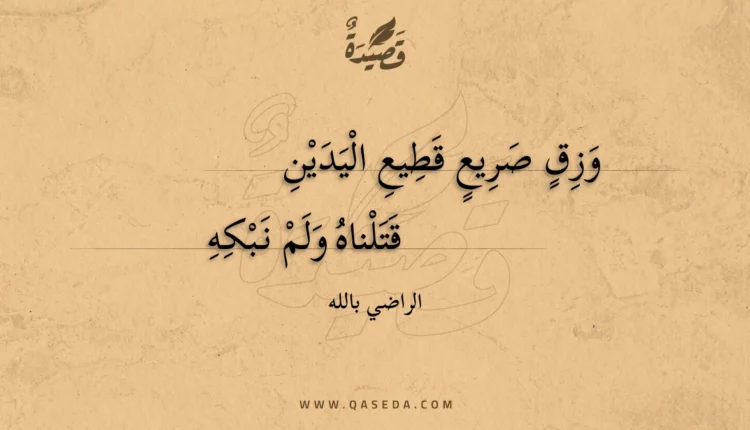 قَصِيدَةٌ
وَزِقٍ صَرِيعٍ قَطِيعِ الْيَدَيْنِ
قَتَلْناهُ وَلَمْ نَبْكِهِ
الراضي بالله
WWW.QASEDA.COM